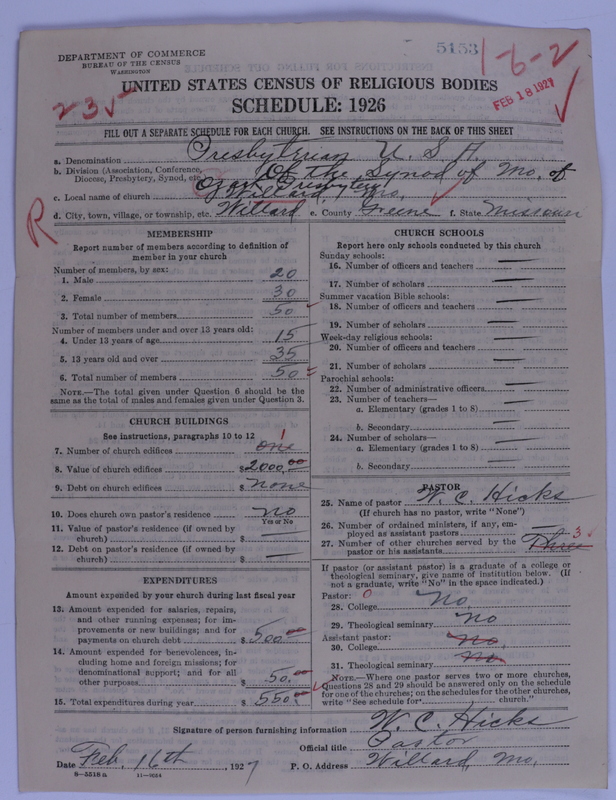 5153
1-6-2
DEPARTMENT OF COMMERCE
BUREAU OF THE CENSUS
WASHINGTON
UNITED STATES CENSUS OF RELIGIOUS BODIES
SCHEDULE: 1926
FEB 18 1927
235
FILL OUT A SEPARATE SCHEDULE FOR EACH CHURCH. SEE INSTRUCTIONS ON THE BACK OF THIS SHEET
a. Denomination Presbyterian U. S. A.
b. Division (Association, Conference, Diocese, Presbytery, Synod, etc.) Of the Synod of Mo. of Ozark Presbytery
c. Local name of church Willard, Mo.
d. City, town, village, or township, etc. Willard e. County Greene f. State Missouri
R
MEMBERSHIP
Report number of members according to definition of
member in your church
Number of members, by sex:
1. Male 20
2. Female 30
3. Total number of members 50
Number of members under and over 13 years old:
4. Under 13 years of age 15
5. 13 years old and over 35
6. Total number of members 50
NOTE.—The total given under Question 6 should be the
same as the total of males and females given under Question 3.
CHURCH BUILDINGS
See instructions, paragraphs 10 to 12
7. Number of church edifices one 1
8. Value of church edifices $2000.00
9. Debt on church edifices $ none
10. Does church own pastor's residence? no
Yes or No
11. Value of pastor's residence (if owned by
church) $ —
12. Debt on pastor's residence (if owned by
church) $ —
EXPENDITURES
Amount expended by your church during last fiscal year
13. Amount expended for salaries, repairs,
and other running expenses; for im-
provements or new buildings; and for
payments on church debt $ 500.00
14. Amount expended for benevolences, in-
cluding home and foreign missions; for
denominational support; and for all
other purposes $ 50.00
15. Total expenditures during year $ 550.00
CHURCH SCHOOLS
Report here only schools conducted by this church
Sunday schools:
16. Number of officers and teachers —
17. Number of scholars —
Summer vacation Bible schools:
18. Number of officers and teachers —
19. Number of scholars —
Week-day religious schools:
20. Number of officers and teachers —
21. Number of scholars —
Parochial schools:
22. Number of administrative officers —
23. Number of teachers—
a. Elementary (grades 1 to 8) —
b. Secondary —
24. Number of scholars—
a. Elementary (grades 1 to 8) —
b. Secondary —
PASTOR
25. Name of pastor W. C. Hicks
(If church has no pastor, write "None")
26. Number of ordained ministers, if any, em-
ployed as assistant pastors —
27. Number of other churches served by the
pastor or his assistants Three 3
If pastor (or assistant pastor) is a graduate of a college or
theological seminary, give name of institution below. (If
not a graduate, write "No" in the space indicated.)
Pastor: 0
28. College No
29. Theological seminary No
Assistant pastor:
30. College No
31. Theological seminary No
NOTE.—Where one pastor serves two or more churches,
Questions 28 and 29 should be answered only on the schedule
for one of the churches; on the schedules for the other churches,
write "See schedule for church."
Signature of person furnishing information W. C. Hicks
Official title Pastor
Date Feb, 16th, 1927 P. O. Address Willard, Mo.
8-5518a 11-9634